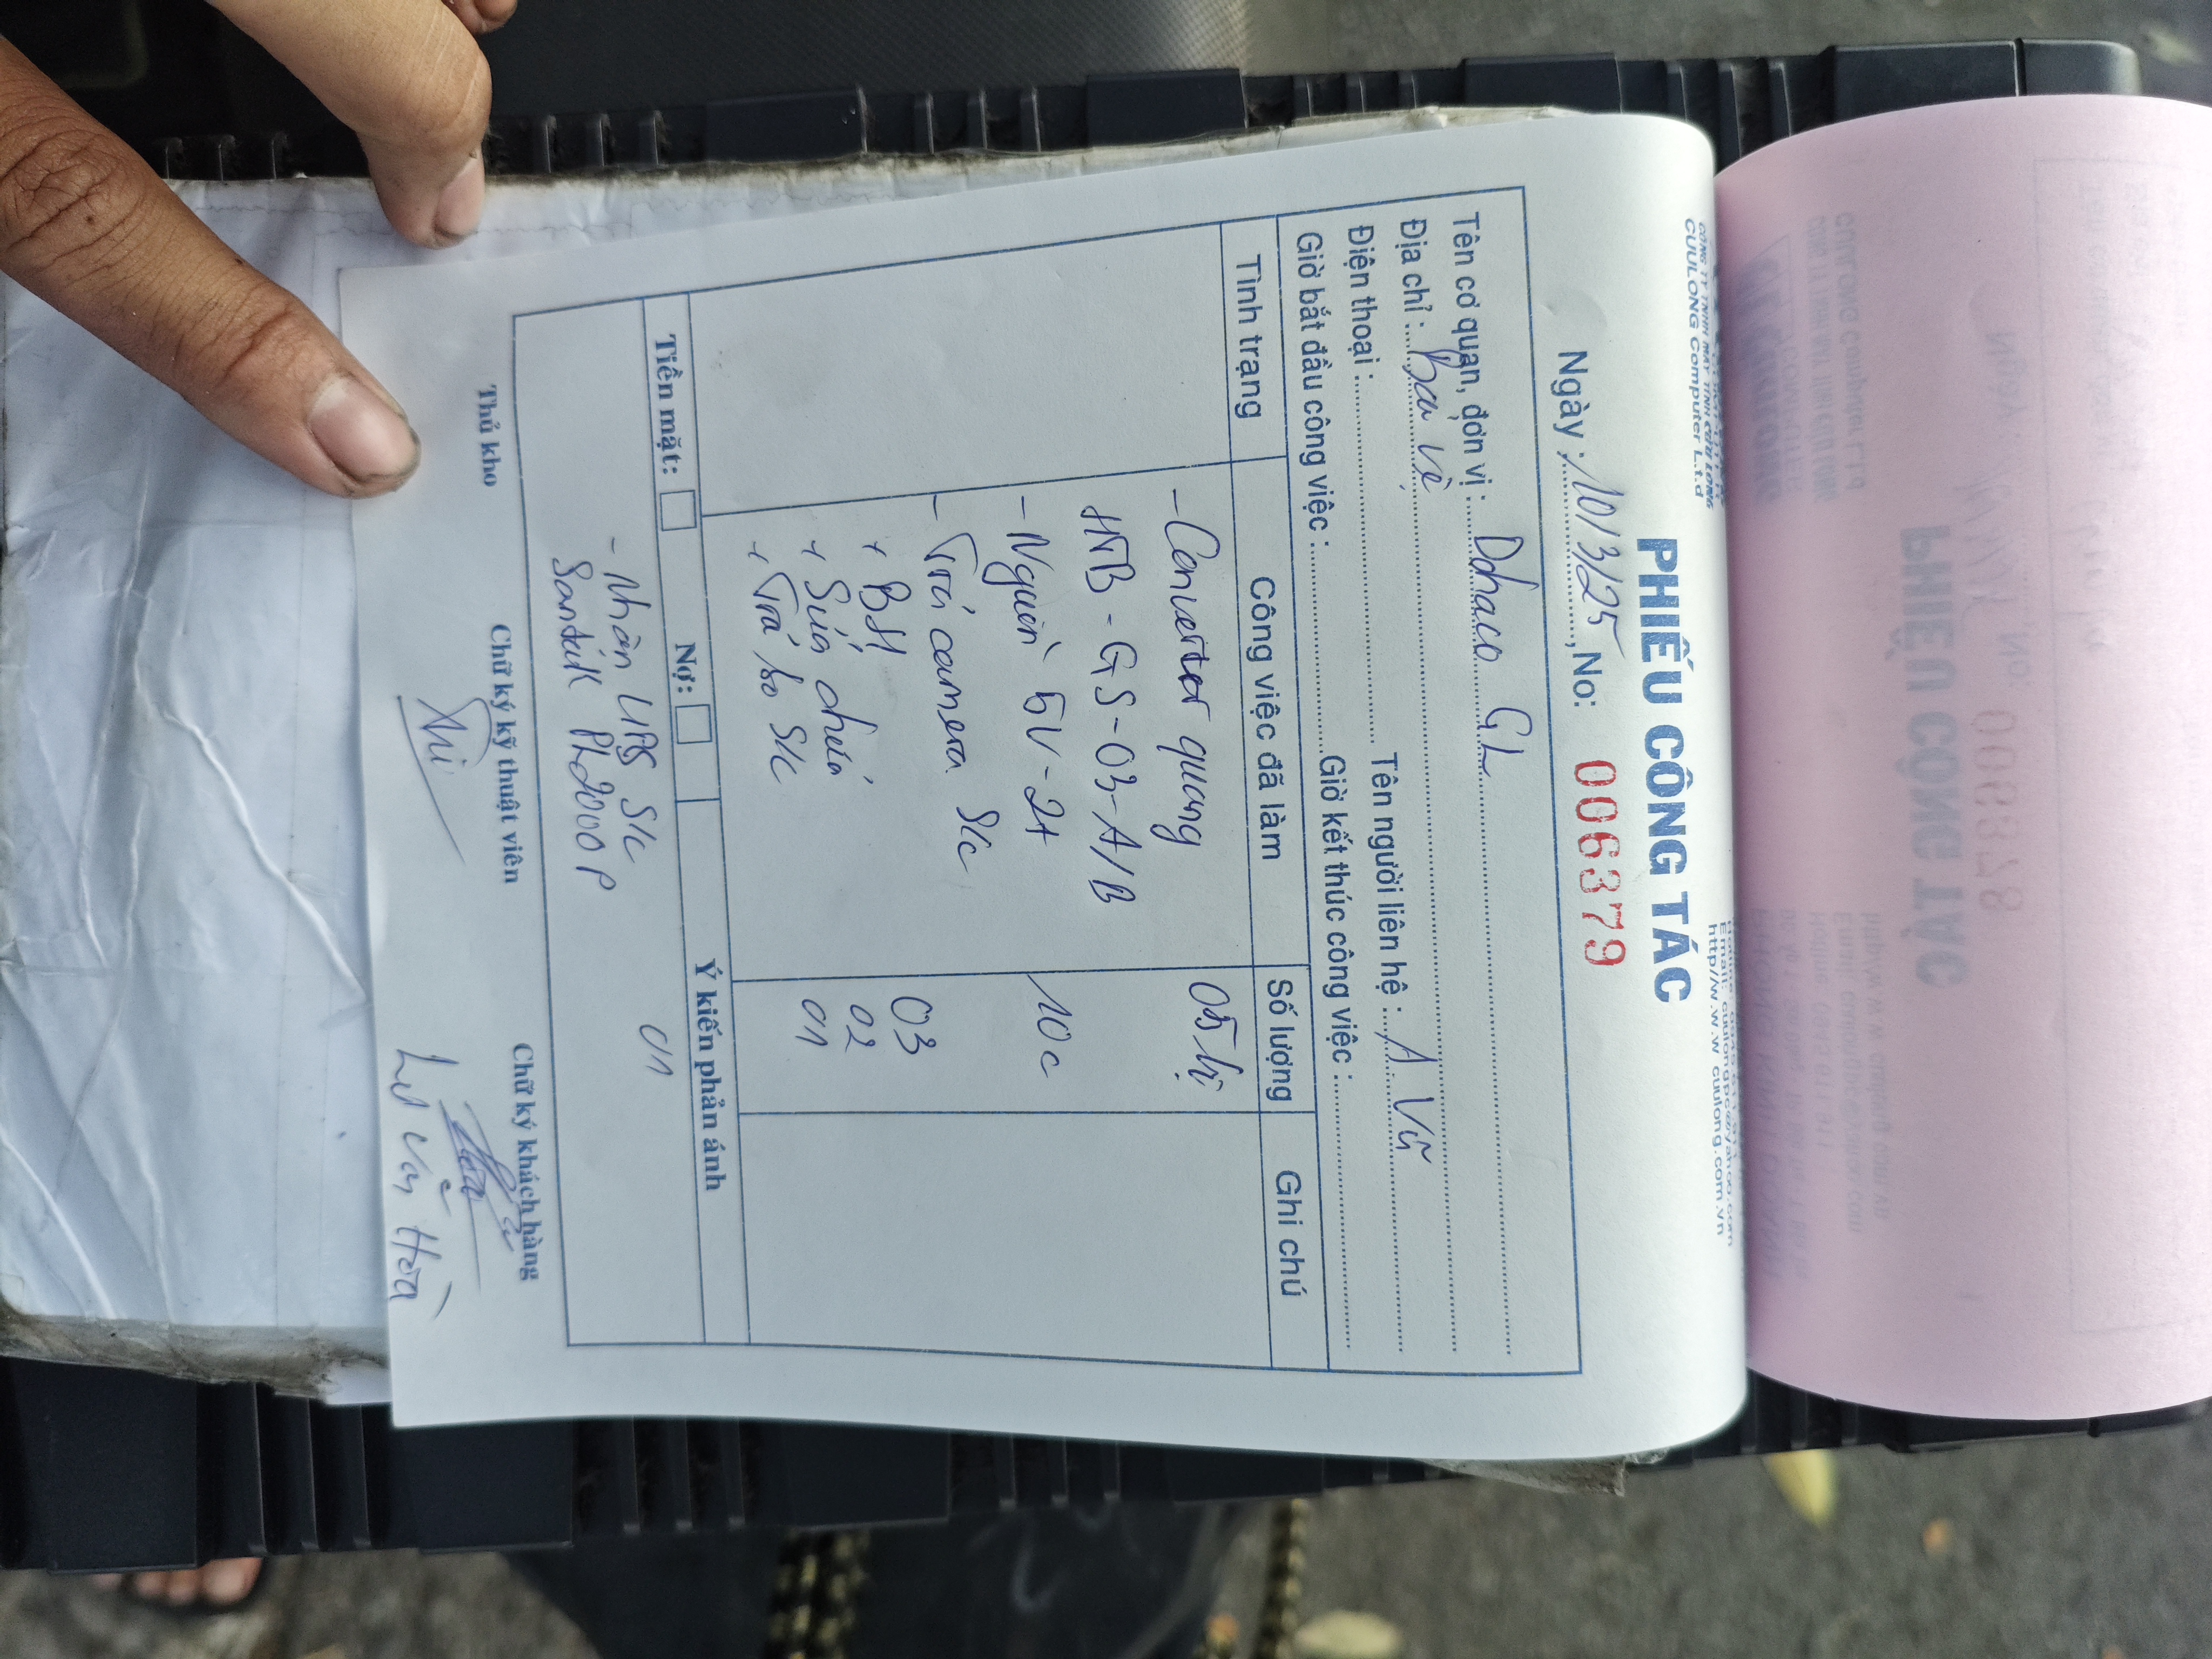 CÔNG TY TNHH MÁY TÍNH CỬU LONG
CUULONG Computer L.t.d
Email: cuulongpc@yahoo.com
http//w.w.w cuulong.com.vn
PHIẾU CÔNG TÁC
Ngày : 10/3/25, No: 006379
Tên cơ quan, đơn vị : Dohaco GL
Địa chỉ : Bàu vẻ
Điện thoại : Tên người liên hệ : A Vũ
Giờ bắt đầu công việc : Giờ kết thúc công việc :
Tình trạng Công việc đã làm Số lượng Ghi chú
- Converter quang 05 bị
HTB - GS - 03 - A/B
- Nguồn 5V - 2A 10c
- Trả camera S/c
+ BH 03
+ Sửa chữa 02
+ Trả ko S/c 01
Tiền mặt: Nợ: Ý kiến phản ánh
- Nhận UPS S/c 01
Santak PL2000P
Thủ kho Chữ ký kỹ thuật viên Chữ ký khách hàng
Lư Văn Hòa
PHIẾU CÔNG TÁC